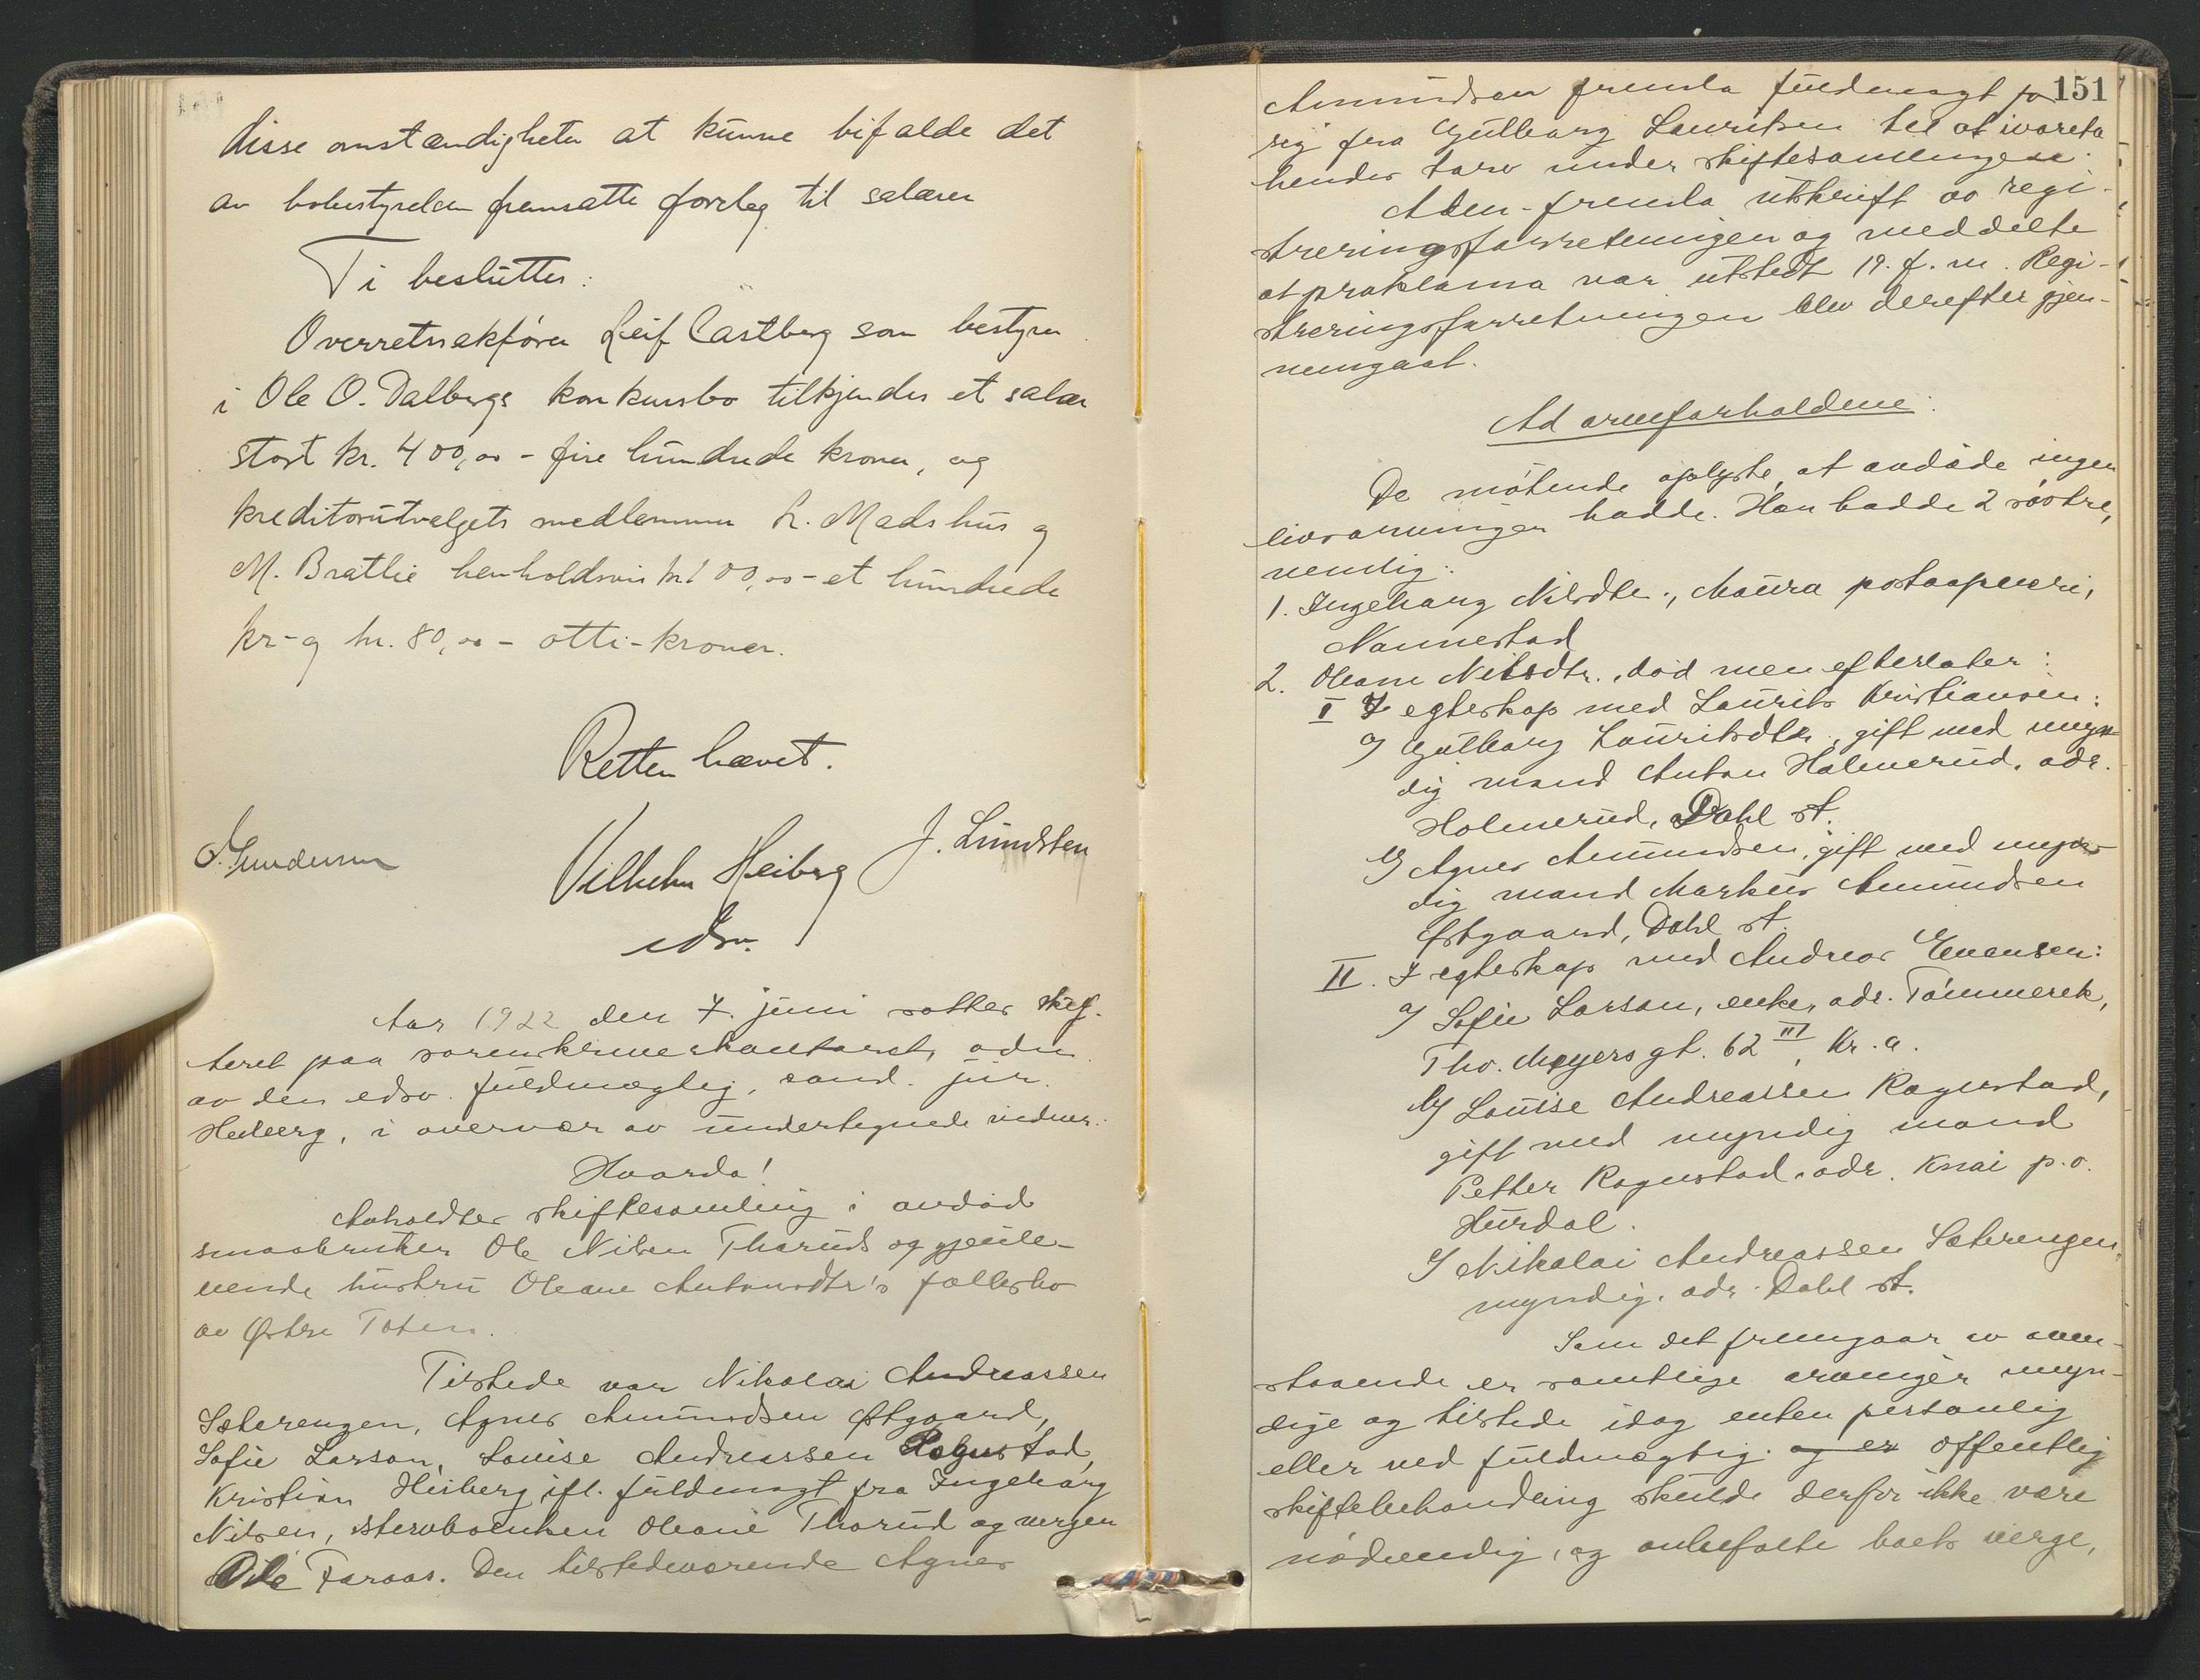 disse omstændigheter at kunne bifalde det
av bobestyrelsen fremsatte forslag til salærer
Ti besluttes:
Overretssakfører Leif Castberg som bestyrer
i Ole O. Dalbergs konkursbo tilkjendes et salær
stort kr. 400,00 - fire hundrede kroner, og
kreditorutvalgets medlemmer L. Madshus og
M. Brattlie henholdsvis kr. 100,00 - et hundrede
kr - og kr. 80,00 - otti - kroner.
Retten hævet.
Vilhelm Heiberg J. Lundsten
O. Gundersen
edsv.
Aar 1922 den 7. juni sattes skif-
teret paa sorenskriverkontoret, adm.
av den edsv. fuldmægtig, cand. jur.
Heiberg, i overvær av undertegnede vidner.
Hvorda!
Avholdtes skiftesamling i avdød
smaabruker Ole Nilsen Tharuds og gjenle-
vende hustru Oleane Antonsdtr's fællesbo
av Østre Toten.
Tilstede var Nikolai Andreassen
Sæterengen, Agnes Amundsen Østgaard,
Sofie Larson, Louise Andreassen Rognstad,
Kristian Heiberg ifl. fuldmagt fra Ingeborg
Nilsen, sterboenken Oleane Tharud og vergen
Ole Faraas. Den tilstedeværende Agnes
151
Amundsen fremla fuldmagt for
sig fra Gulborg Lauritsen til at ivareta
hendes tarv under skiftesamlingen.
Adm. fremla utskrift av regi-
streringsforretningen og meddelte
at proklama var utstedt 19. f. m. Regi-
streringsforretningen blev derefter gjen-
nemgaat.
Ad arveforholdene:
De møtende oplyste, at avdøde ingen
livsarvinger hadde. Han hadde 2 søstre,
nemlig:
1. Ingeborg Nilsdtr., Maura postaapneri,
Nannestad
2. Oleane Nilsdtr., død men efterlater:
I I egteskap med Laurits Kristiansen:
a) Gulborg Lauritsdtr, gift med myn-
dig mand Anton Holmerud, adr.
Holmerud, Dahl st.
b) Agnes Amundsen, gift med myn-
dig mand Markus Amundsen
Østgaard, Dahl st.
II. I egteskap med Andreas Evensen:
a) Sofie Larson, enke, adr. Tømmerek,
Thv. Meyersgt. 62 III, Kr.a.
b) Louise Andreassen Rognstad,
gift med myndig mand
Petter Rognstad, adr. Knai p.o.
Hurdal.
c) Nikolai Andreassen Sæterengen,
myndig, adr. Dahl st.
Som det fremgaar av oven-
staaende er samtlige arvinger myn-
dige og tilstede idag enten personlig
eller ved fuldmægtig. og er offentlig
skiftebehandling skulde derfor ikke være
nødvendig, og anbefalte boets verge,